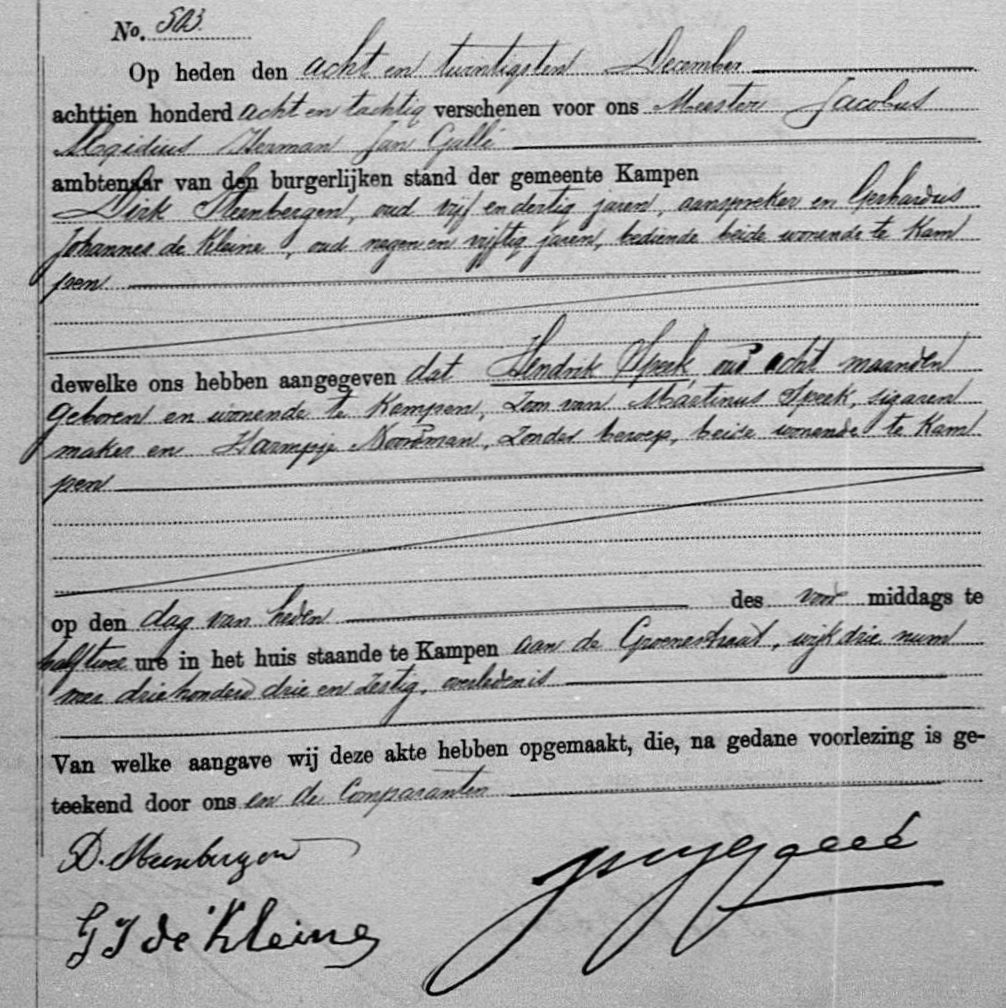 No. 503.
Op heden den acht en twintigsten December
achttien honderd acht en tachtig verschenen voor ons Meester Jacobus
Aegidius Herman Jan Gallé
ambtenaar van den burgerlijken stand der gemeente Kampen
Dirk Steenbergen, oud vijf en dertig jaren, aanspreker en Gerhardus
Johannes de Kleine, oud negen en vijftig jaren, bediende beide wonende te Kam
pen
dewelke ons hebben aangegeven dat Hendrik Speek, oud acht maanden
geboren en wonende te Kampen, Zoon van Martinus Speek, sigaren
maker en Harmpje Noordman, Zonder beroep, beide wonende te Kam
pen
op den dag van heden des voor middags te
half twee ure in het huis staande te Kampen aan de Groenestraat, wijk drie num
mer driehonderd drie en Zestig, overleden is
Van welke aangave wij deze akte hebben opgemaakt, die, na gedane voorlezing is ge-
teekend door ons en de Comparanten
D. Steenbergen
G J de Kleine